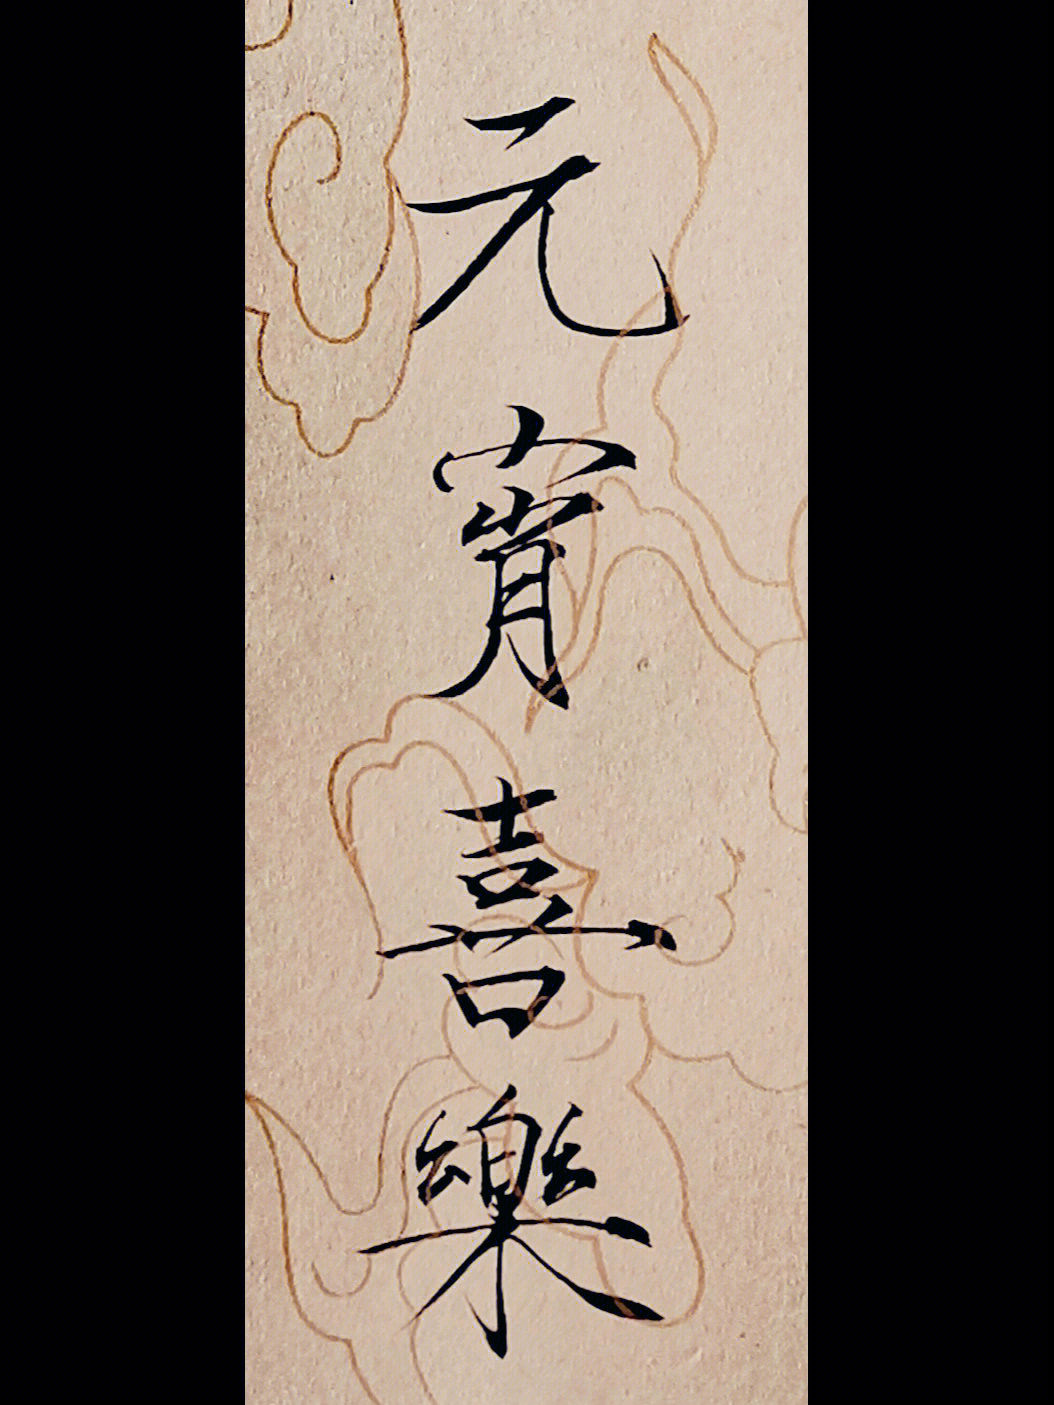 元宵喜樂